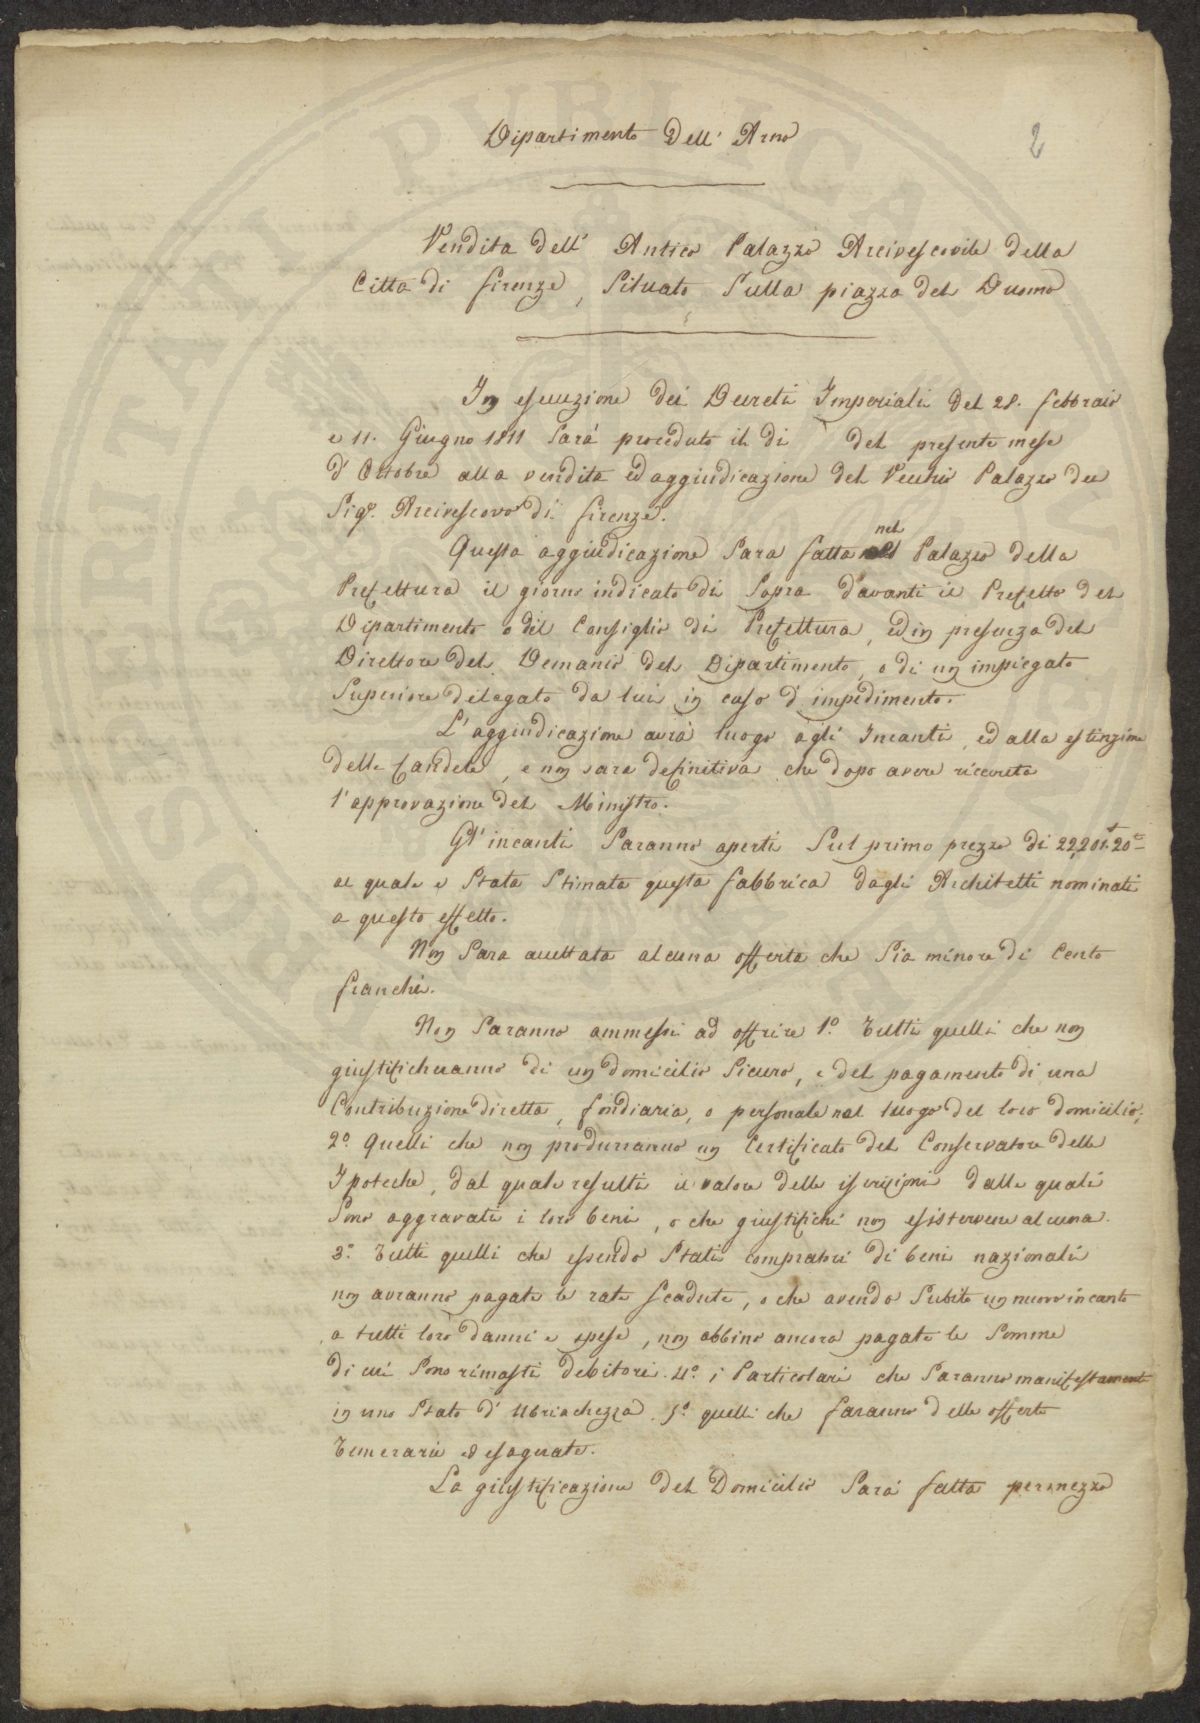 2
Dipartimento Dell' Arno
Vendita dell' Antico Palazzo Arcivescovile della
Città di Firenze, Situato Sulla piazza del Duomo
In esecuzione dei Decreti Imperiali del 28. febbraio
e 11. Giugno 1811 Sarà proceduto il di del presente mese
d' Ottobre alla vendita ed aggiudicazione del Vecchio Palazzo del
Sigr. Arcivescovo di Firenze.
Questa aggiudicazione Sara fatta nel Palazzo della
Prefettura il giorno indicato di Sopra davanti il Prefetto del
Dipartimento o del Consiglio di Prefettura, ed in presenza del
Direttore del Demanio del Dipartimento, o di un impiegato
Superiore delegato da lui in caso d'impedimento.
L'aggiudicazione avrà luogo agli Incanti, ed alla estinzione
delle Candele, e non sara definitiva che dopo avere ricevuta
l'approvazione del Ministro.
Gl' incanti Saranno aperti Sul primo prezzo di 22,201.20
al quale e Stata Stimata questa fabbrica dagli Architetti nominati
a questo effetto.
Non Sara accettata alcuna offerta che Sia minore di Cento
franchi.
Non Saranno ammessi ad offrire 1º. Tutti quelli che non
giustificheranno di un domicilio Sicuro, e del pagamento di una
Contribuzione diretta, fondiaria, o personale nel luogo del loro domicilio;
2º. Quelli che non produrranno un Certificato del Conservatore delle
Ipoteche, dal quale resulti il valore delle iscrizioni dalle quali
Sono aggravati i loro beni, o che giustifichi non esistervene alcuna.
3º. Tutti quelli che essendo Stati compratori di beni nazionali
non avranno pagate le rate Scadute, o che avendo Subito un nuovo incanto
a tutti loro danni e spese, non abbino ancora pagate le Somme
di cui Sono rimasti debitori. 4º. i Particolari che Saranno manifestamente
in uno Stato d' Ubriachezza. 5º. quelli che faranno delle offerte
Temerarie ed esagerate.
La giustificazione del Domicilio Sarà fatta per mezzo